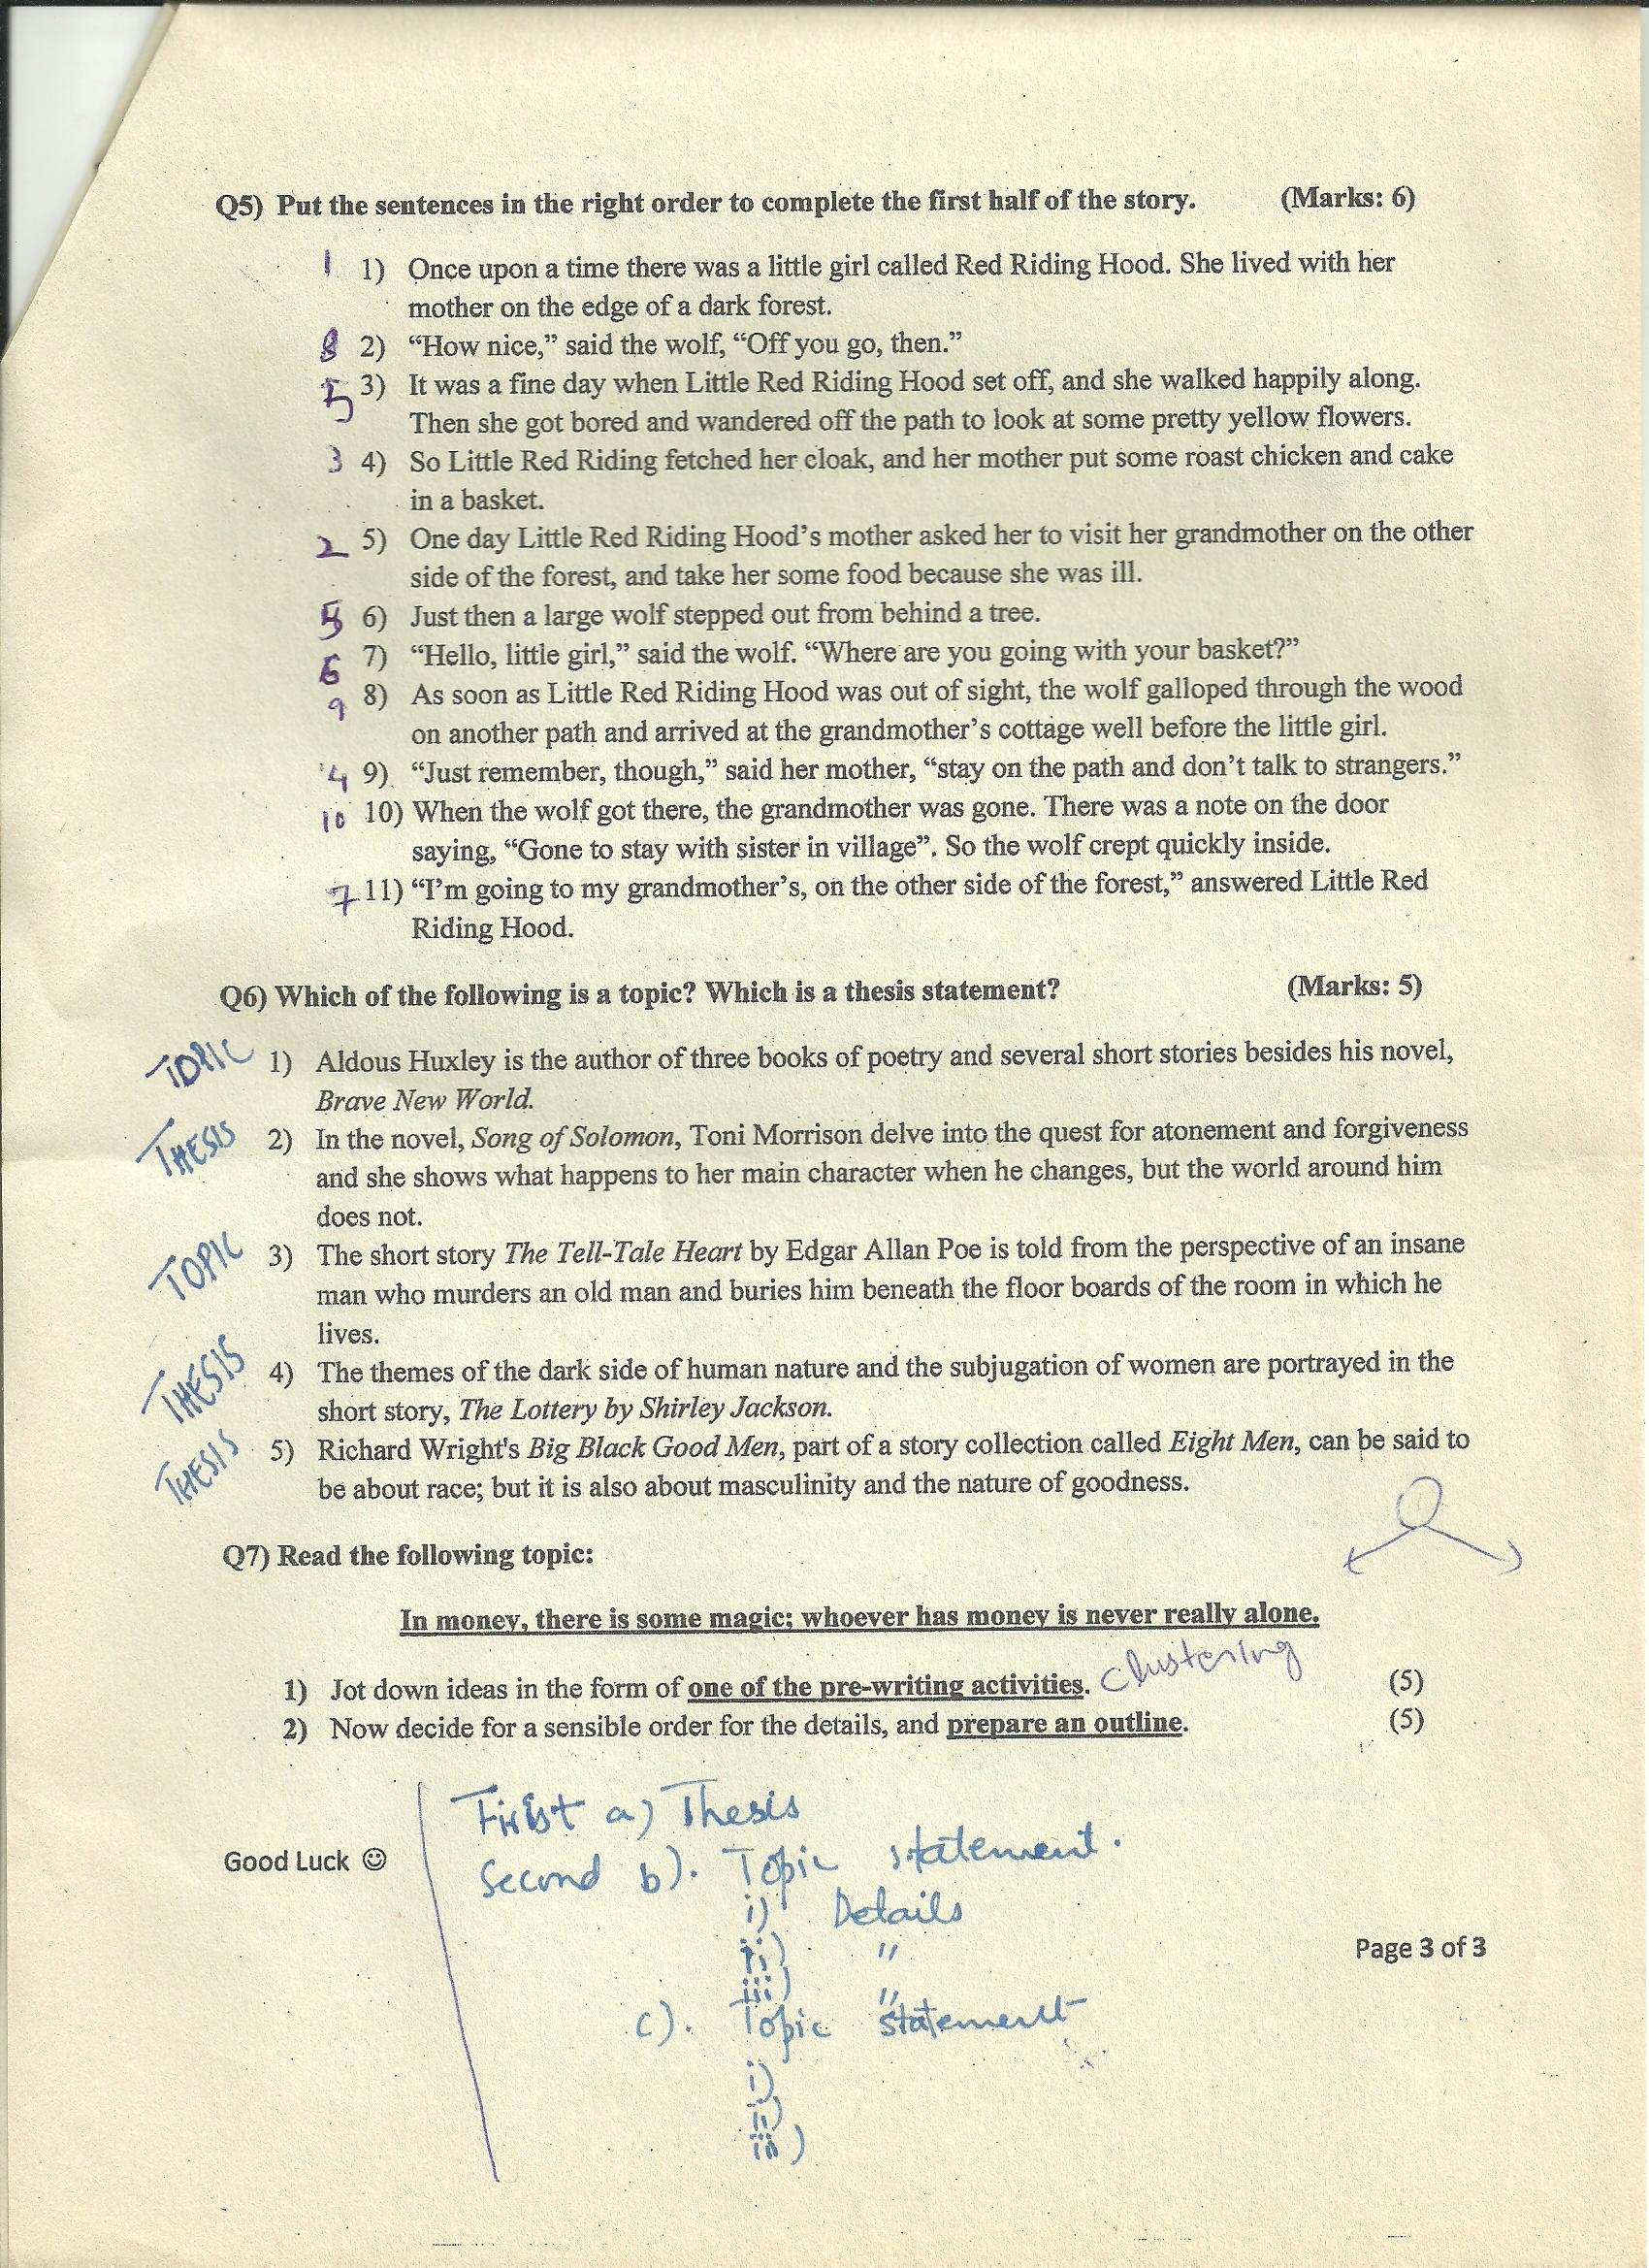 Q5) Put the sentences in the right order to complete the first half of the story. (Marks: 6)
1 1) Once upon a time there was a little girl called Red Riding Hood. She lived with her
mother on the edge of a dark forest.
8 2) “How nice,” said the wolf, “Off you go, then.”
5 3) It was a fine day when Little Red Riding Hood set off, and she walked happily along.
Then she got bored and wandered off the path to look at some pretty yellow flowers.
3 4) So Little Red Riding fetched her cloak, and her mother put some roast chicken and cake
in a basket.
2 5) One day Little Red Riding Hood’s mother asked her to visit her grandmother on the other
side of the forest, and take her some food because she was ill.
5 6) Just then a large wolf stepped out from behind a tree.
6 7) “Hello, little girl,” said the wolf. “Where are you going with your basket?”
9 8) As soon as Little Red Riding Hood was out of sight, the wolf galloped through the wood
on another path and arrived at the grandmother’s cottage well before the little girl.
4 9) “Just remember, though,” said her mother, “stay on the path and don’t talk to strangers.”
10 10) When the wolf got there, the grandmother was gone. There was a note on the door
saying, “Gone to stay with sister in village”. So the wolf crept quickly inside.
7 11) “I’m going to my grandmother’s, on the other side of the forest,” answered Little Red
Riding Hood.
Q6) Which of the following is a topic? Which is a thesis statement? (Marks: 5)
TOPIC 1) Aldous Huxley is the author of three books of poetry and several short stories besides his novel,
Brave New World.
THESIS 2) In the novel, Song of Solomon, Toni Morrison delve into the quest for atonement and forgiveness
and she shows what happens to her main character when he changes, but the world around him
does not.
TOPIC 3) The short story The Tell-Tale Heart by Edgar Allan Poe is told from the perspective of an insane
man who murders an old man and buries him beneath the floor boards of the room in which he
lives.
THESIS 4) The themes of the dark side of human nature and the subjugation of women are portrayed in the
short story, The Lottery by Shirley Jackson.
THESIS 5) Richard Wright's Big Black Good Men, part of a story collection called Eight Men, can be said to
be about race; but it is also about masculinity and the nature of goodness.
Q7) Read the following topic:
In money, there is some magic; whoever has money is never really alone.
1) Jot down ideas in the form of one of the pre-writing activities. Clustering (5)
2) Now decide for a sensible order for the details, and prepare an outline. (5)
First a) Thesis
Good Luck ☺
Second b). Topic statement.
i) Details
ii) "
iii) "
Page 3 of 3
c). Topic statement
i)
ii)
iii)